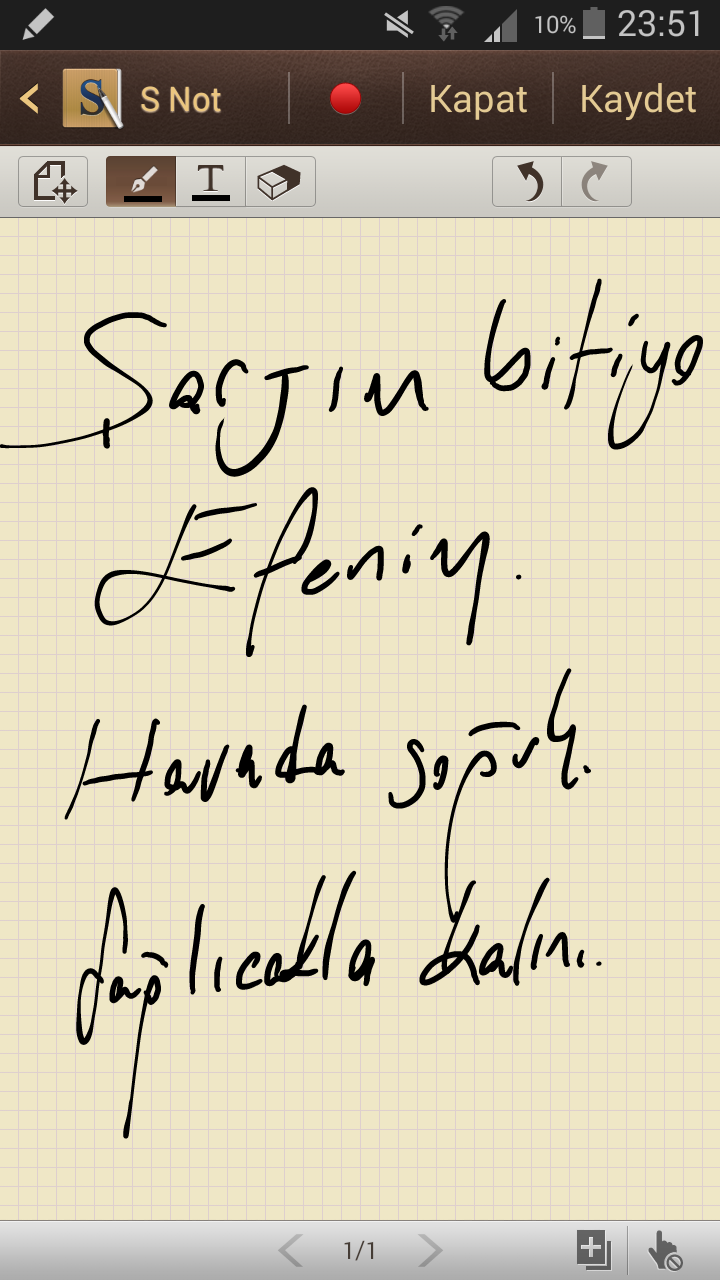 10% 23:51
S Not Kapat Kaydet
T
Şarjım bitiyo
Efenim.
Havada soğuk.
Sağlıcakla kalın.
1/1